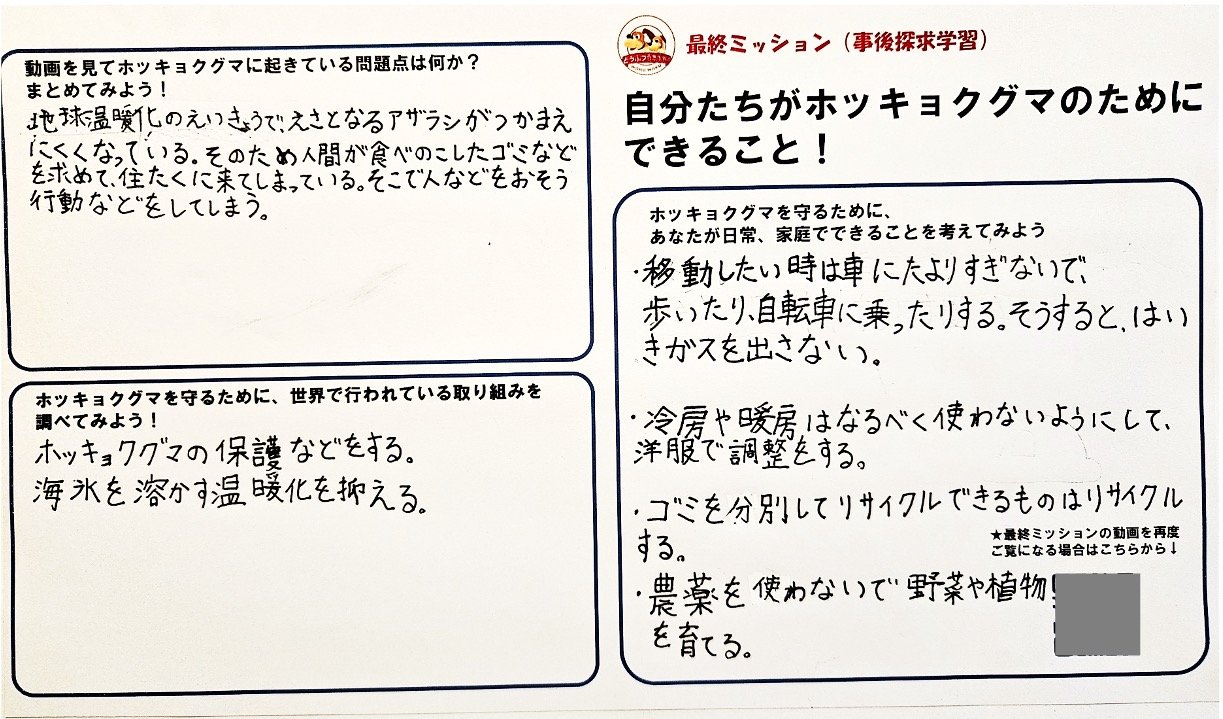 動画を見てホッキョクグマに起きている問題点は何か？
まとめてみよう！
地球温暖化のえいきょうで、えさとなるアザラシがつかまえ
にくくなっている。そのため人間が食べのこしたゴミなど
を求めて、住たくに来てしまっている。そこで人などをおそう
行動などをしてしまう。
ホッキョクグマを守るために、世界で行われている取り組みを
調べてみよう！
ホッキョクグマの保護などをする。
海氷を溶かす温暖化を抑える。
最終ミッション（事後探求学習）
自分たちがホッキョクグマのために
できること！
ホッキョクグマを守るために、
あなたが日常、家庭でできることを考えてみよう
・移動したい時は車にたよりすぎないで、
歩いたり、自転車に乗ったりする。そうすると、はい
きガスを出さない。
・冷房や暖房はなるべく使わないようにして、
洋服で調整をする。
・ゴミを分別してリサイクルできるものはリサイクル
する。
★最終ミッションの動画を再度
ご覧になる場合はこちらから↓
・農薬を使わないで野菜や植物
を育てる。